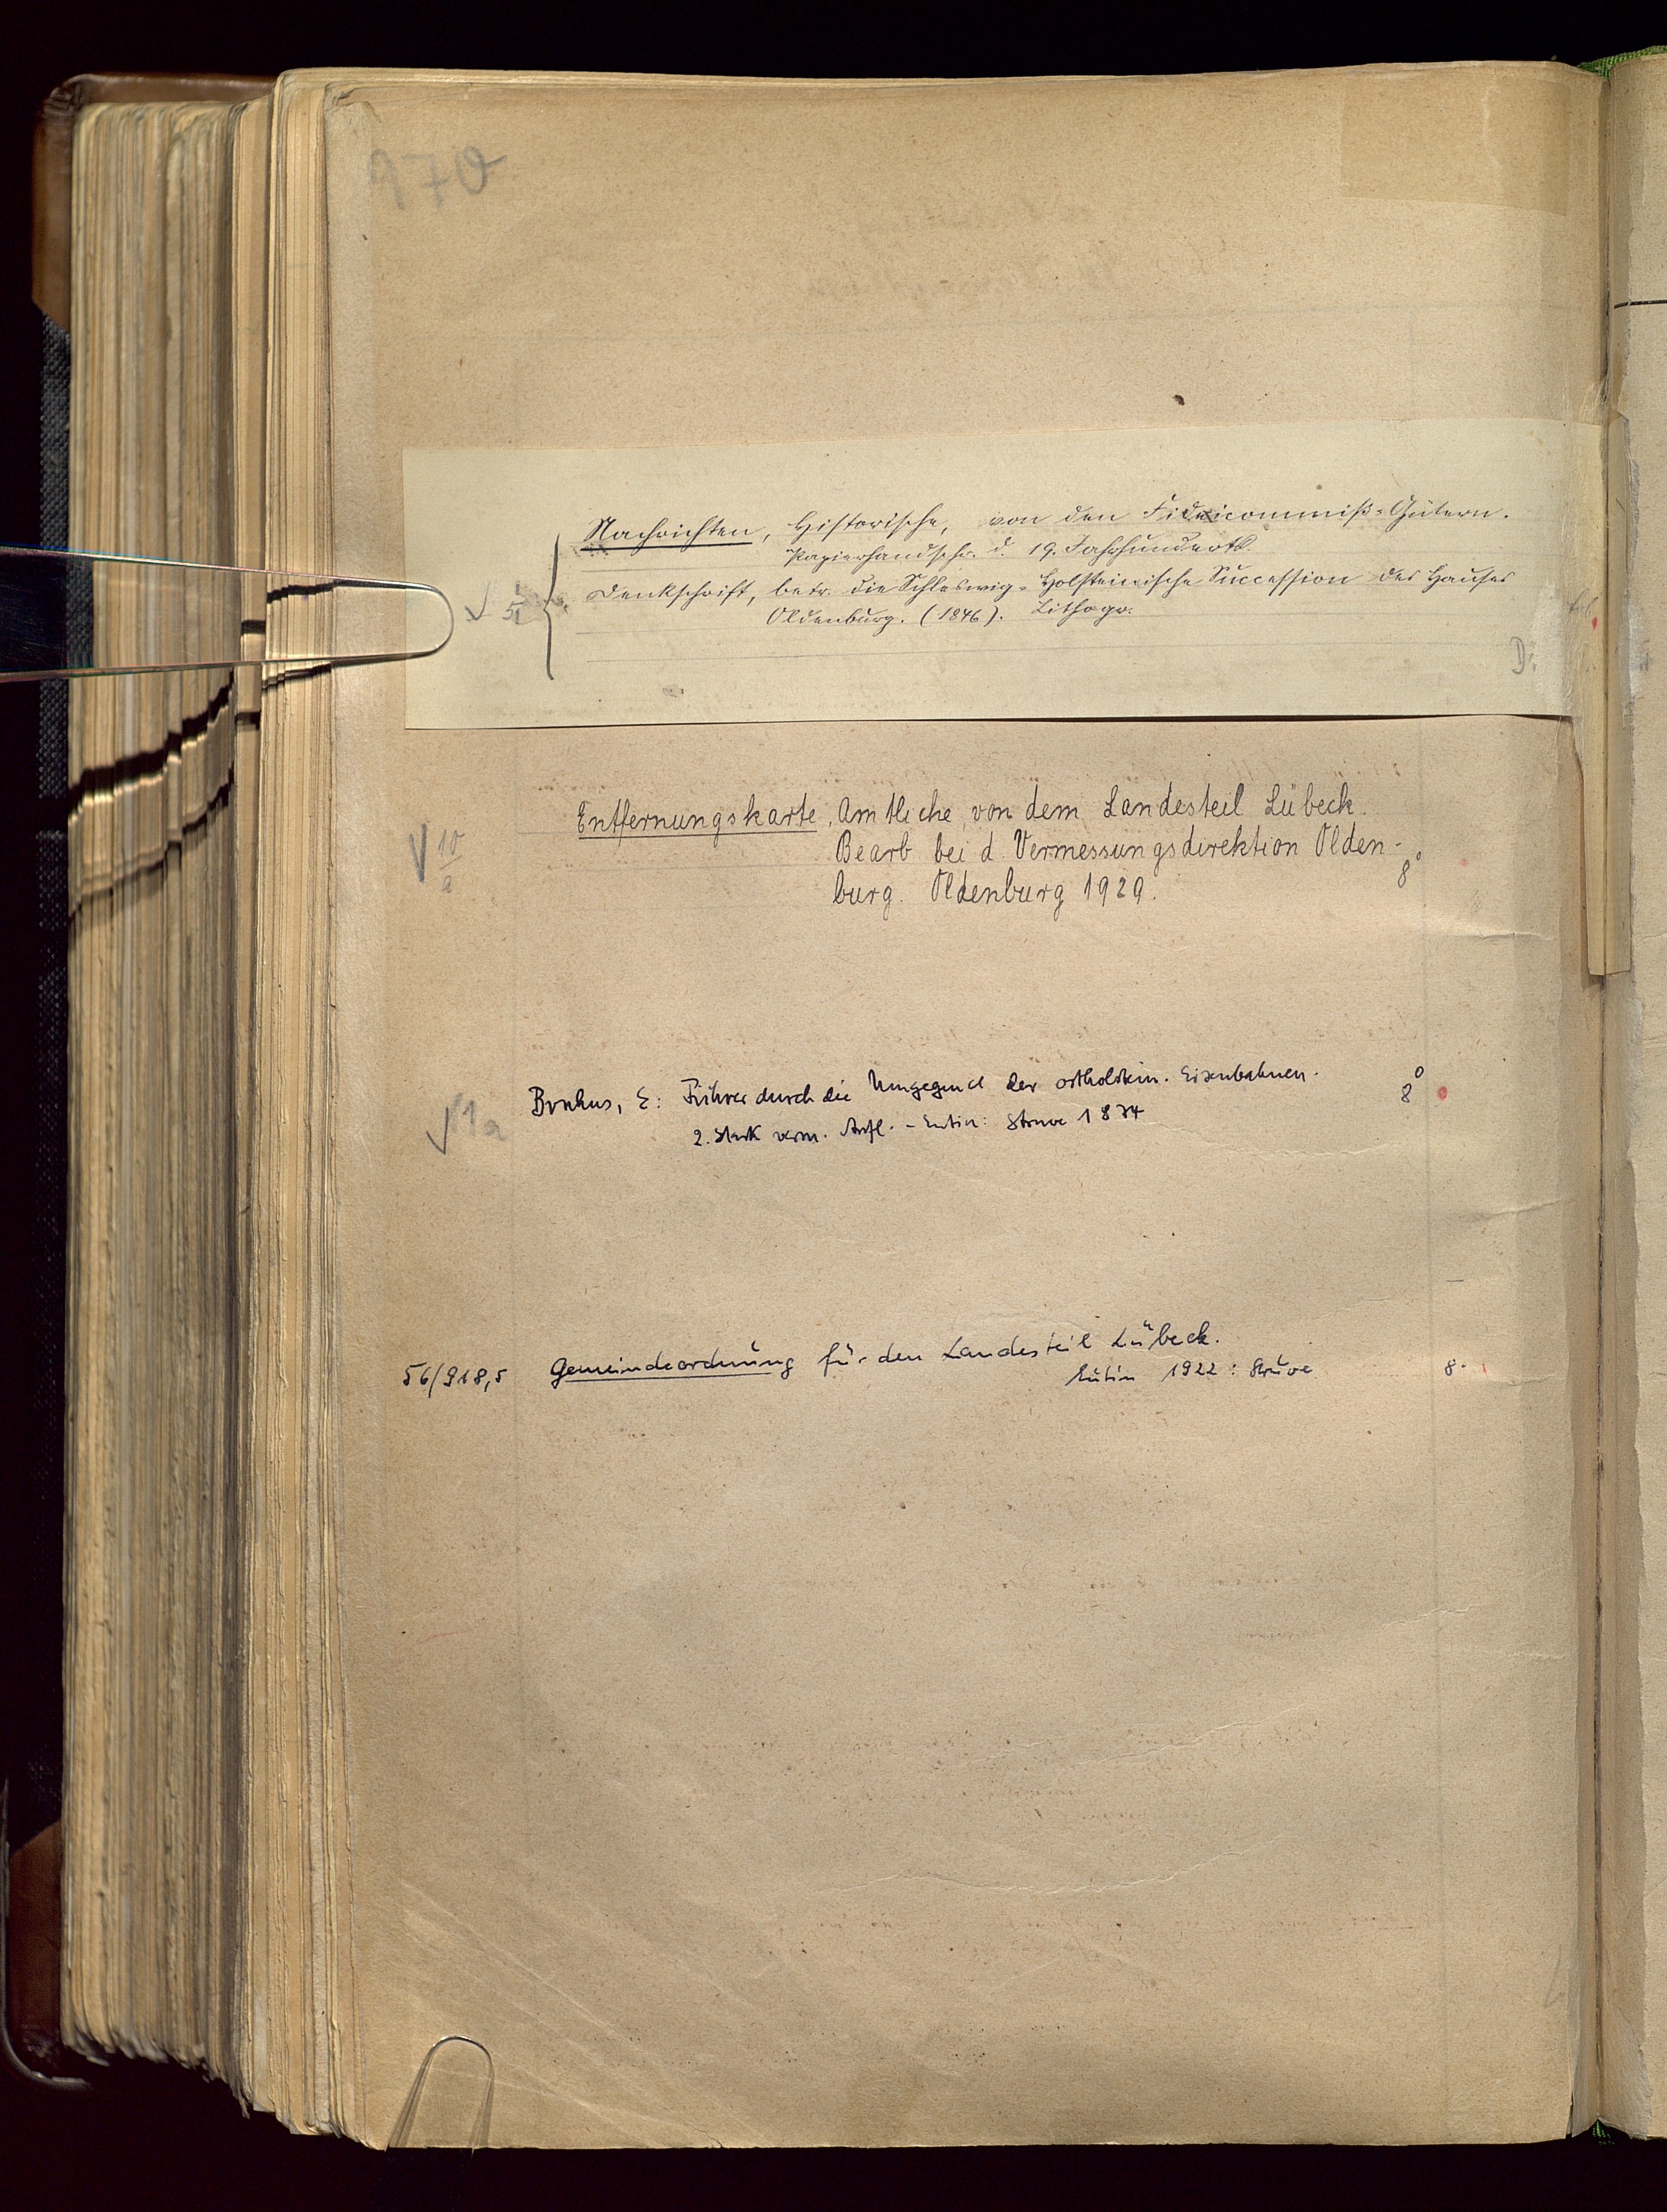 970
Nachrichten, Historische, von den Fideicommiß-Gütern.
Papierhandschr. d. 19. Jahrhunderts.
√ 5
Denkschrift, betr. die Schleswig-Holsteinische Succession des Hauses
Oldenburg. (1846). Lithogr.
fol
D:
Entfernungskarte, Amtliche, von dem Landesteil Lübeck.
√ 10/a
Bearb. bei d. Vermessungsdirektion Olden-
8°
burg. Oldenburg 1929.
√ 1a
Bruhns, E: Führer durch die Umgegend der ostholstein. Eisenbahnen.
8°
2. stark verm. Aufl. - Eutin: Struve 1874
Gemeindeordnung für den Landesteil Lübeck.
56/918,5
Eutin 1922: Struve
8°